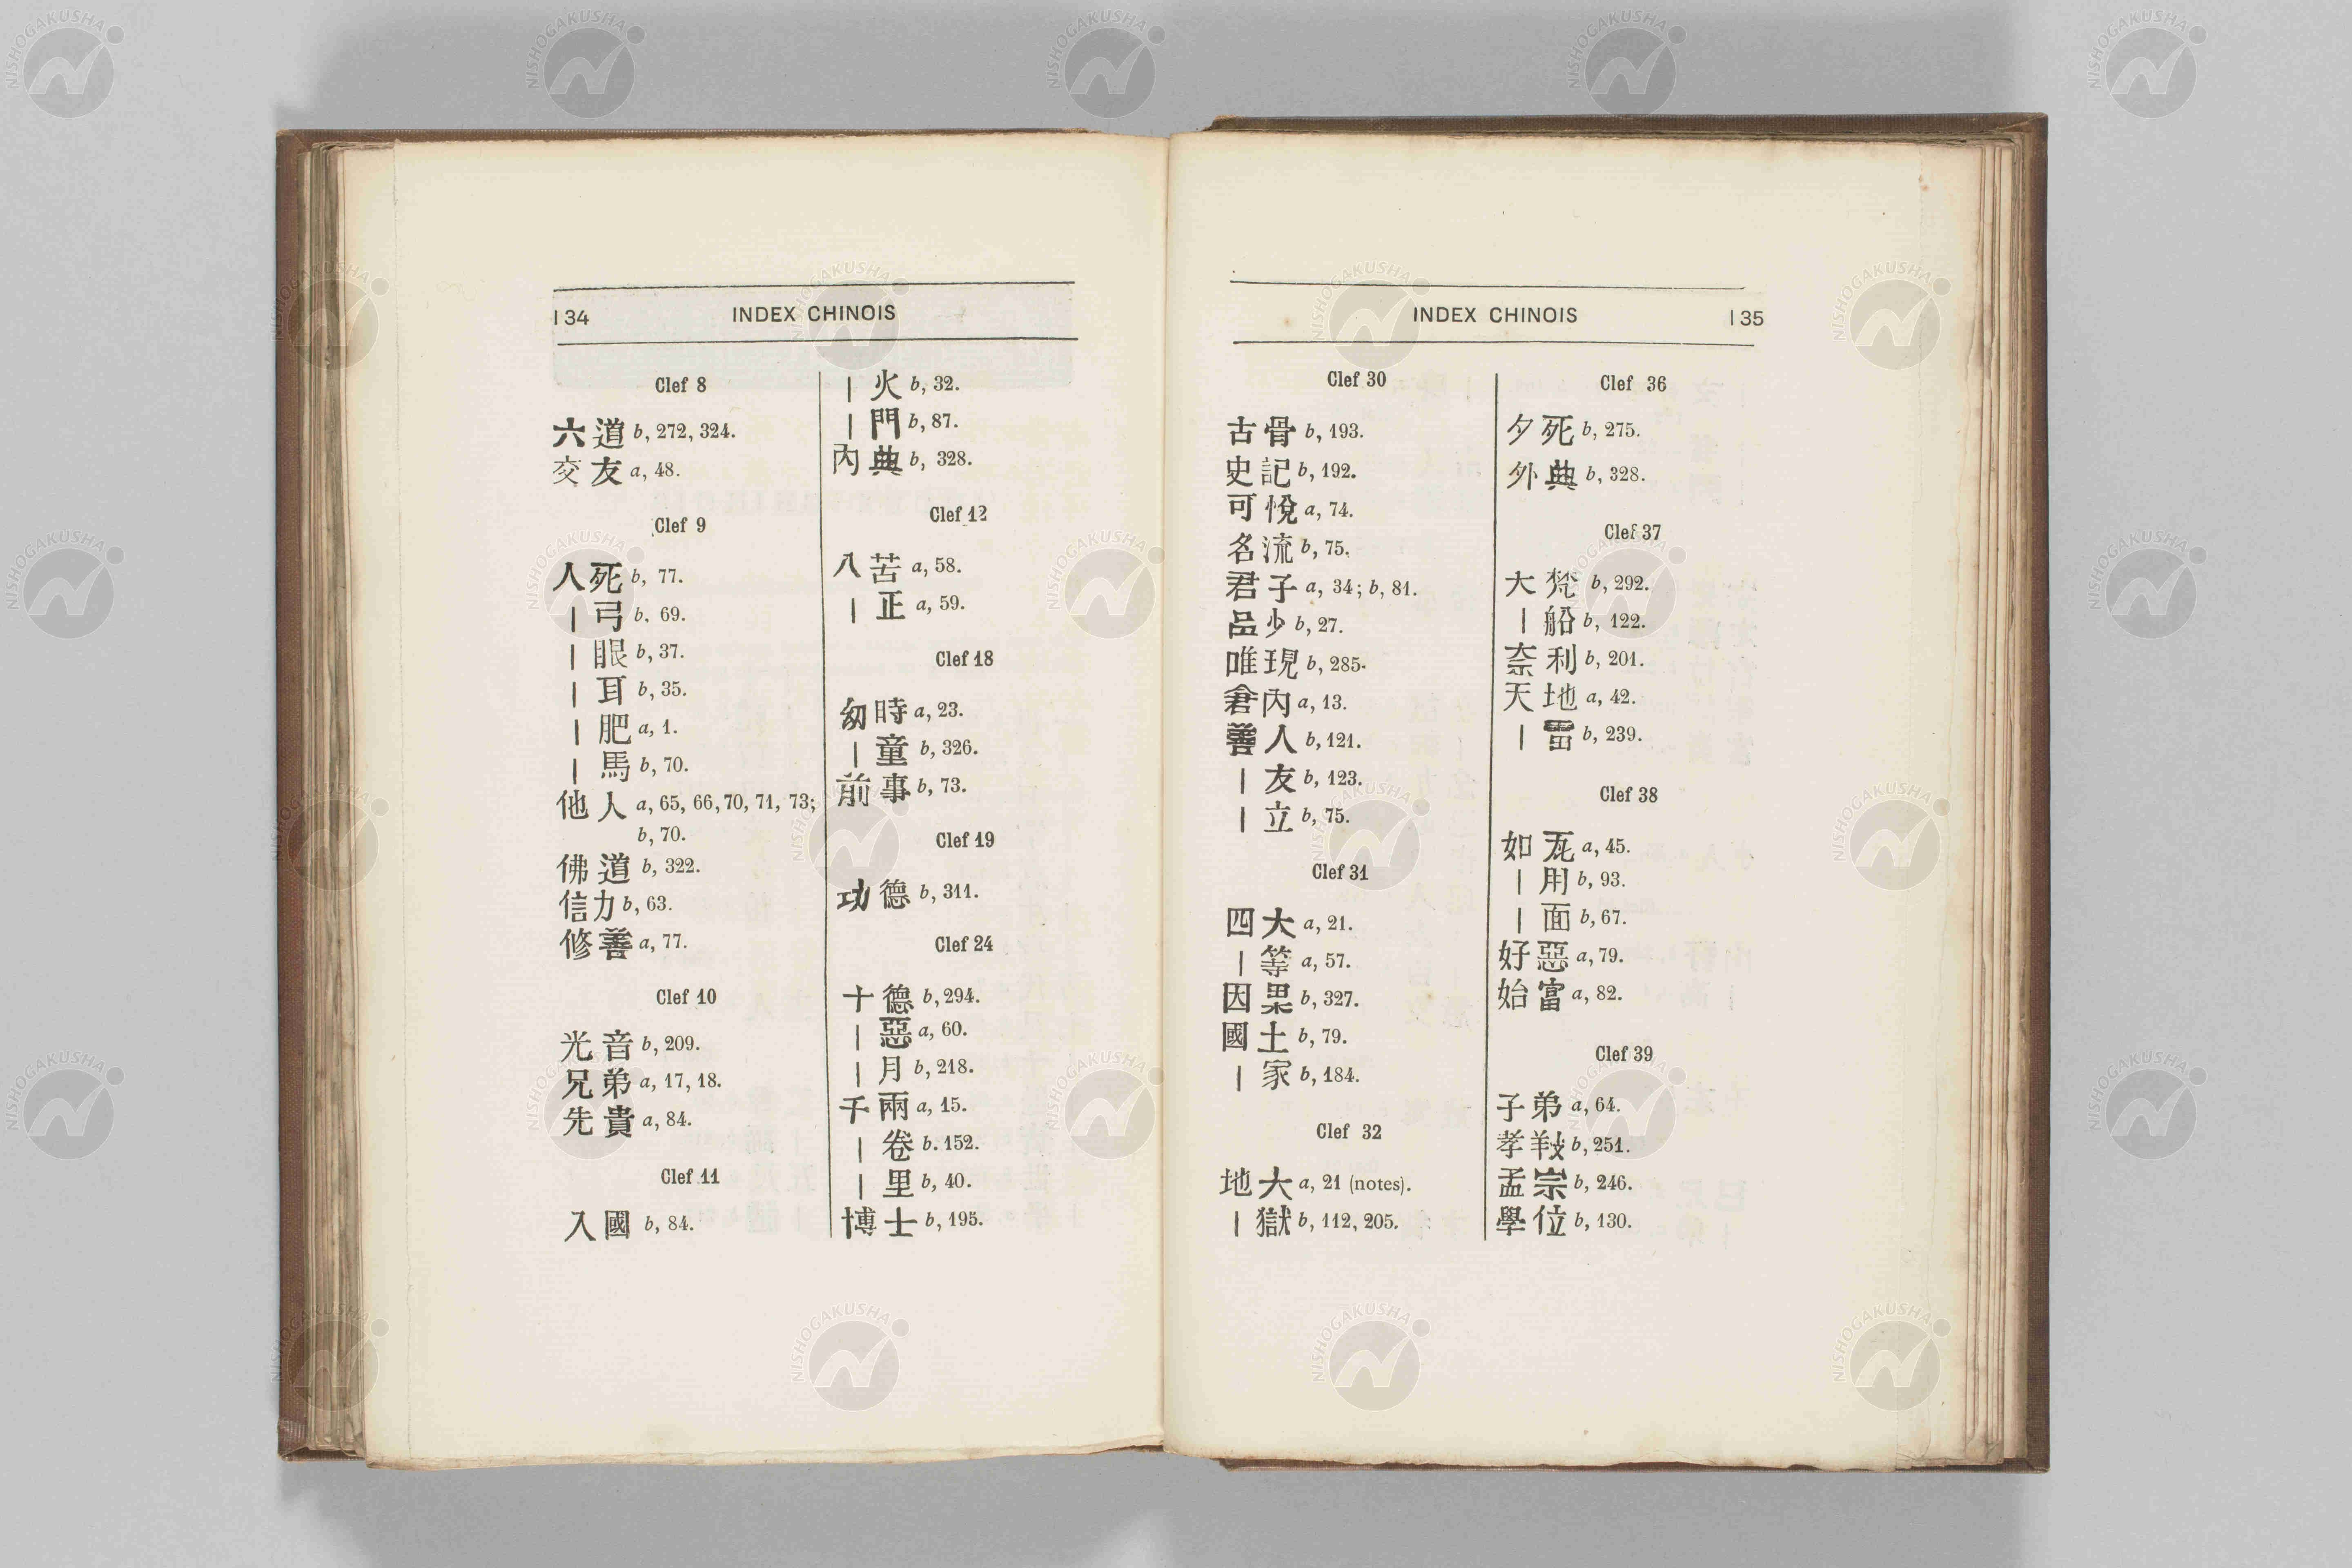 134
INDEX CHINOIS
Clef 8
六道 b, 272, 324.
交友 a, 48.
Clef 9
人死 b, 77.
｜弓 b. 69.
｜眼 b, 37.
｜耳 b, 35.
｜肥 a, 1.
｜馬 b, 70.
他人 a, 65, 66, 70, 71, 73;
b, 70.
佛道 b, 322.
信力 b, 63.
修善 a, 77.
Clef 10
光音 b, 209.
兄弟 a, 17, 18.
先貴 a, 84.
Clef 11
入國 b, 84.
｜火 b, 32.
｜門 b, 87.
內典 b, 328.
Clef 12
八苦 a, 58.
｜正 a, 59.
Clef 18
時 a, 23.
｜童 b, 326.
前事 b, 73.
Clef 19
功德 b, 311.
Clef 24
十德 b, 294.
｜惡 a, 60.
｜月 b, 218.
千兩 a, 15.
｜卷 b. 152.
｜里 b, 40.
博士 b, 195.
INDEX CHINOIS
135
Clef 30
古骨 b, 193.
史記 b, 192.
可悅 a, 74.
名流 b, 75.
君子 a, 34; b, 81.
少 b, 27.
唯現 b, 285.
內 a, 13.
善人 b, 121.
｜友 b, 123.
｜立 b, 75.
Clef 31
四大 a, 21.
｜等 a, 57.
因果 b, 327.
國土 b, 79.
｜家 b, 184.
Clef 32
地大 a, 21 (notes).
｜獄 b, 112, 205.
Clef 36
夕死 b, 275.
外典 b, 328.
Clef 37
大梵 b, 292.
｜船 b, 122.
奈利 b, 201.
天地 a, 42.
｜雷 b, 239.
Clef 38
如 a, 45.
｜用 b, 93.
｜面 b, 67.
好惡 a, 79.
始富 a, 82.
Clef 39
子弟 a, 64.
孝 b, 251.
孟宗 b, 246.
學位 b, 130.
NISHOGAKUSHA